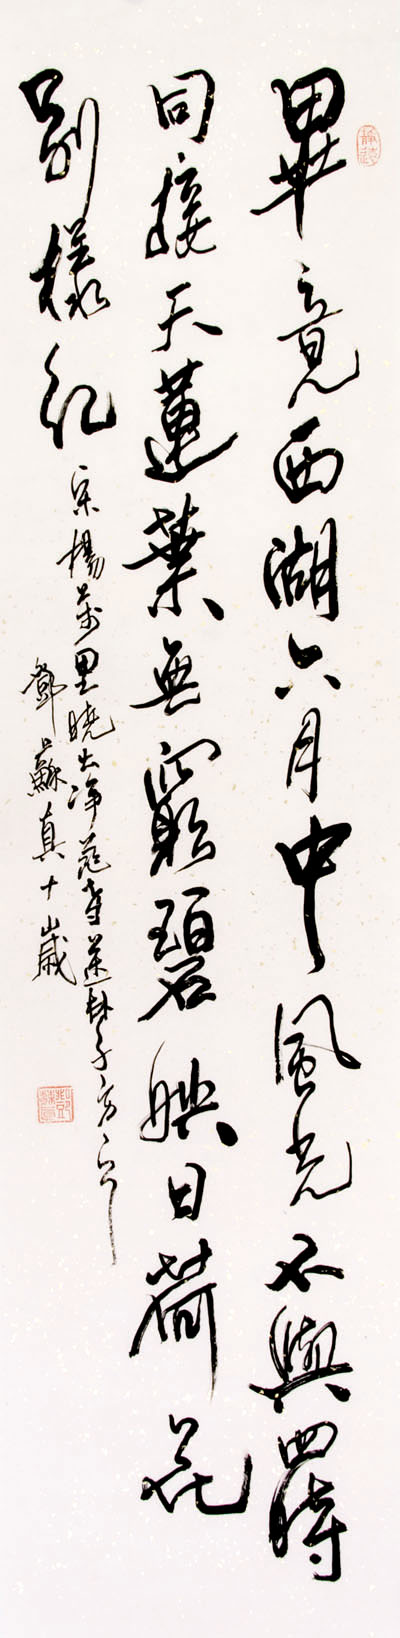 畢竟西湖六月中風光不與四時
同接天蓮葉無窮碧映日荷花
別樣紅
宋楊萬里曉出淨慈寺送林子方之一
鄧蘇真十歲